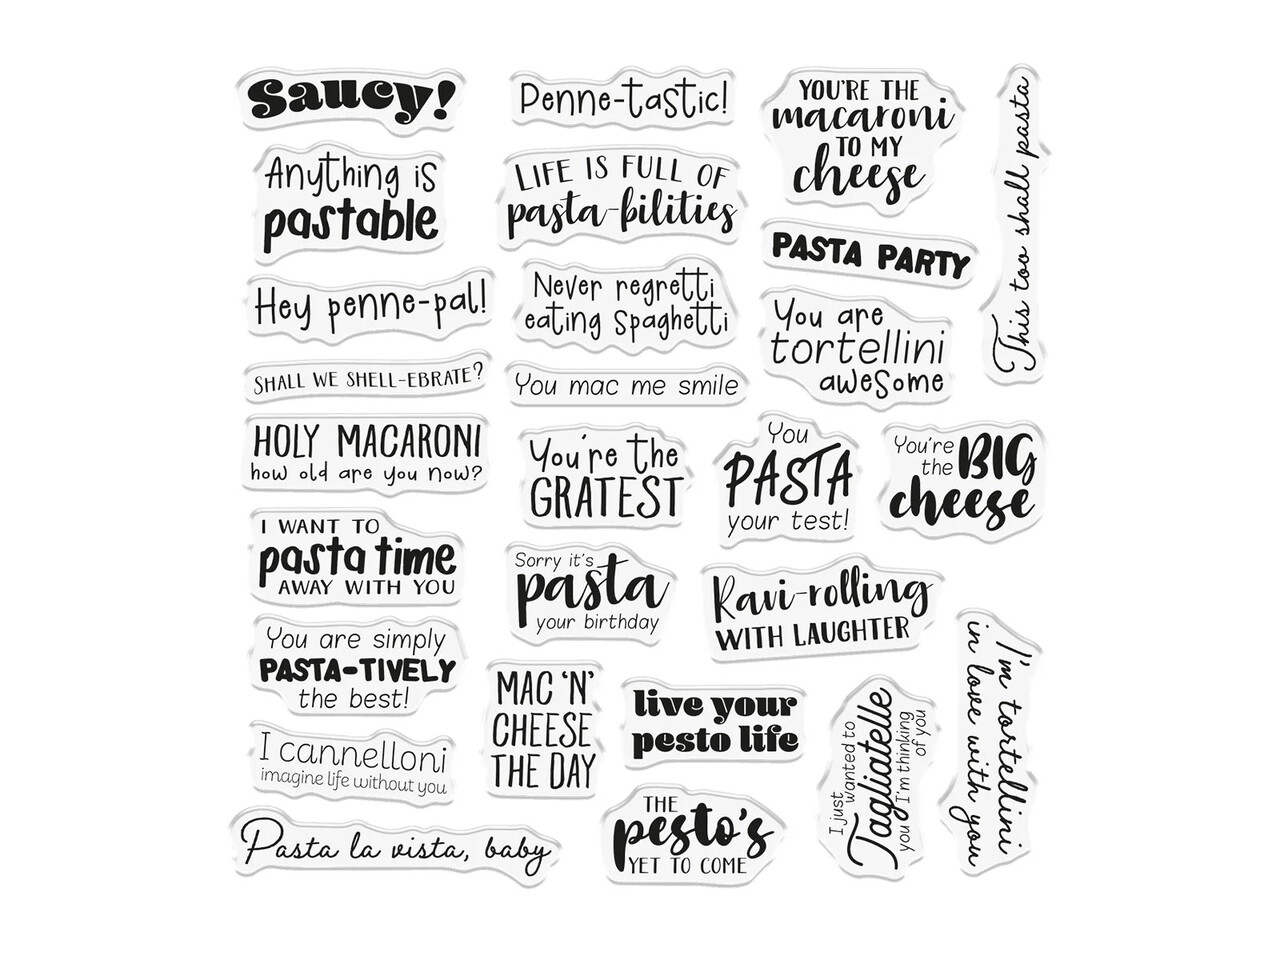 Saucy!
Penne-tastic!
YOU'RE THE
macaroni
TO MY
cheese
This too shall pasta
Anything is
pastable
LIFE IS FULL OF
pasta-bilities
PASTA PARTY
Hey penne-pal!
Never regretti
eating spaghetti
You are
tortellini
awesome
SHALL WE SHELL-EBRATE?
You mac me smile
HOLY MACARONI
how old are you now?
You're the
GRATEST
You
PASTA
your test!
You're
the BIG
cheese
I WANT TO
pasta time
AWAY WITH YOU
Sorry it's
pasta
your birthday
Ravi-rolling
WITH LAUGHTER
You are simply
PASTA-TIVELY
the best!
MAC 'N'
CHEESE
THE DAY
live your
pesto life
I just
wanted to
Tagliatelle
you I'm thinking
of you
I'm tortellini
in love with you
I cannelloni
imagine life without you
THE
pesto's
YET TO COME
Pasta la vista, baby